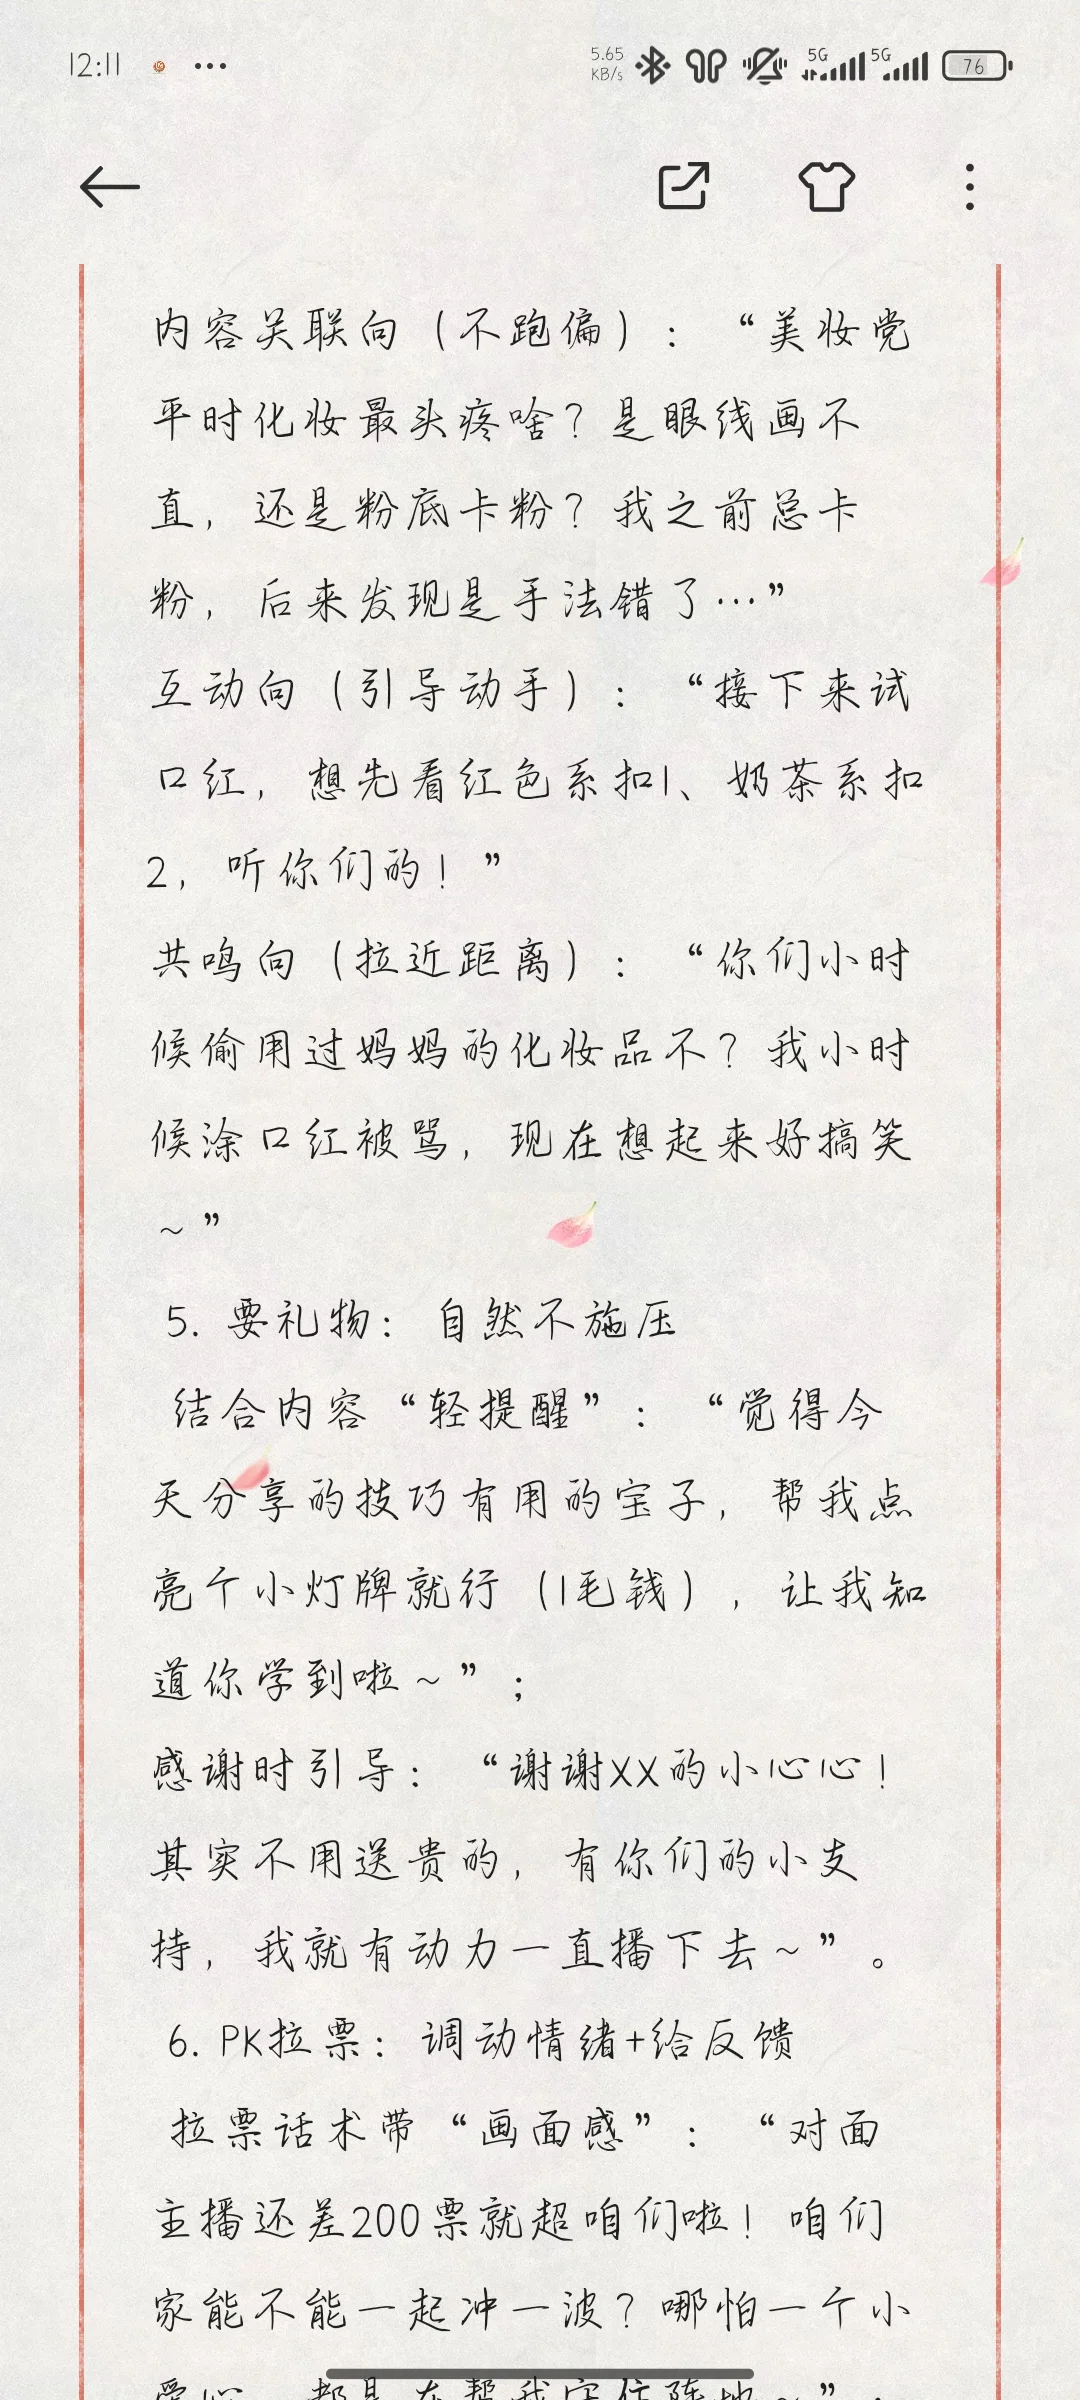 12:11 ... 5.65 KB/s 5G 5G 76
内容关联向（不跑偏）：“美妆党
平时化妆最头疼啥？是眼线画不
直，还是粉底卡粉？我之前总卡
粉，后来发现是手法错了…”
互动向（引导动手）：“接下来试
口红，想先看红色系扣1、奶茶系扣
2，听你们的！”
共鸣向（拉近距离）：“你们小时
候偷用过妈妈的化妆品不？我小时
候涂口红被骂，现在想起来好搞笑
~”
5. 要礼物：自然不施压
结合内容“轻提醒”：“觉得今
天分享的技巧有用的宝子，帮我点
亮个小灯牌就行（1毛钱），让我知
道你学到啦~”；
感谢时引导：“谢谢XX的小心心！
其实不用送贵的，有你们的小支
持，我就有动力一直播下去~”。
6. PK拉票：调动情绪+给反馈
拉票话术带“画面感”：“对面
主播还差200票就超咱们啦！咱们
家能不能一起冲一波？哪怕一个小
爱心，都是在帮我守住阵地~”；